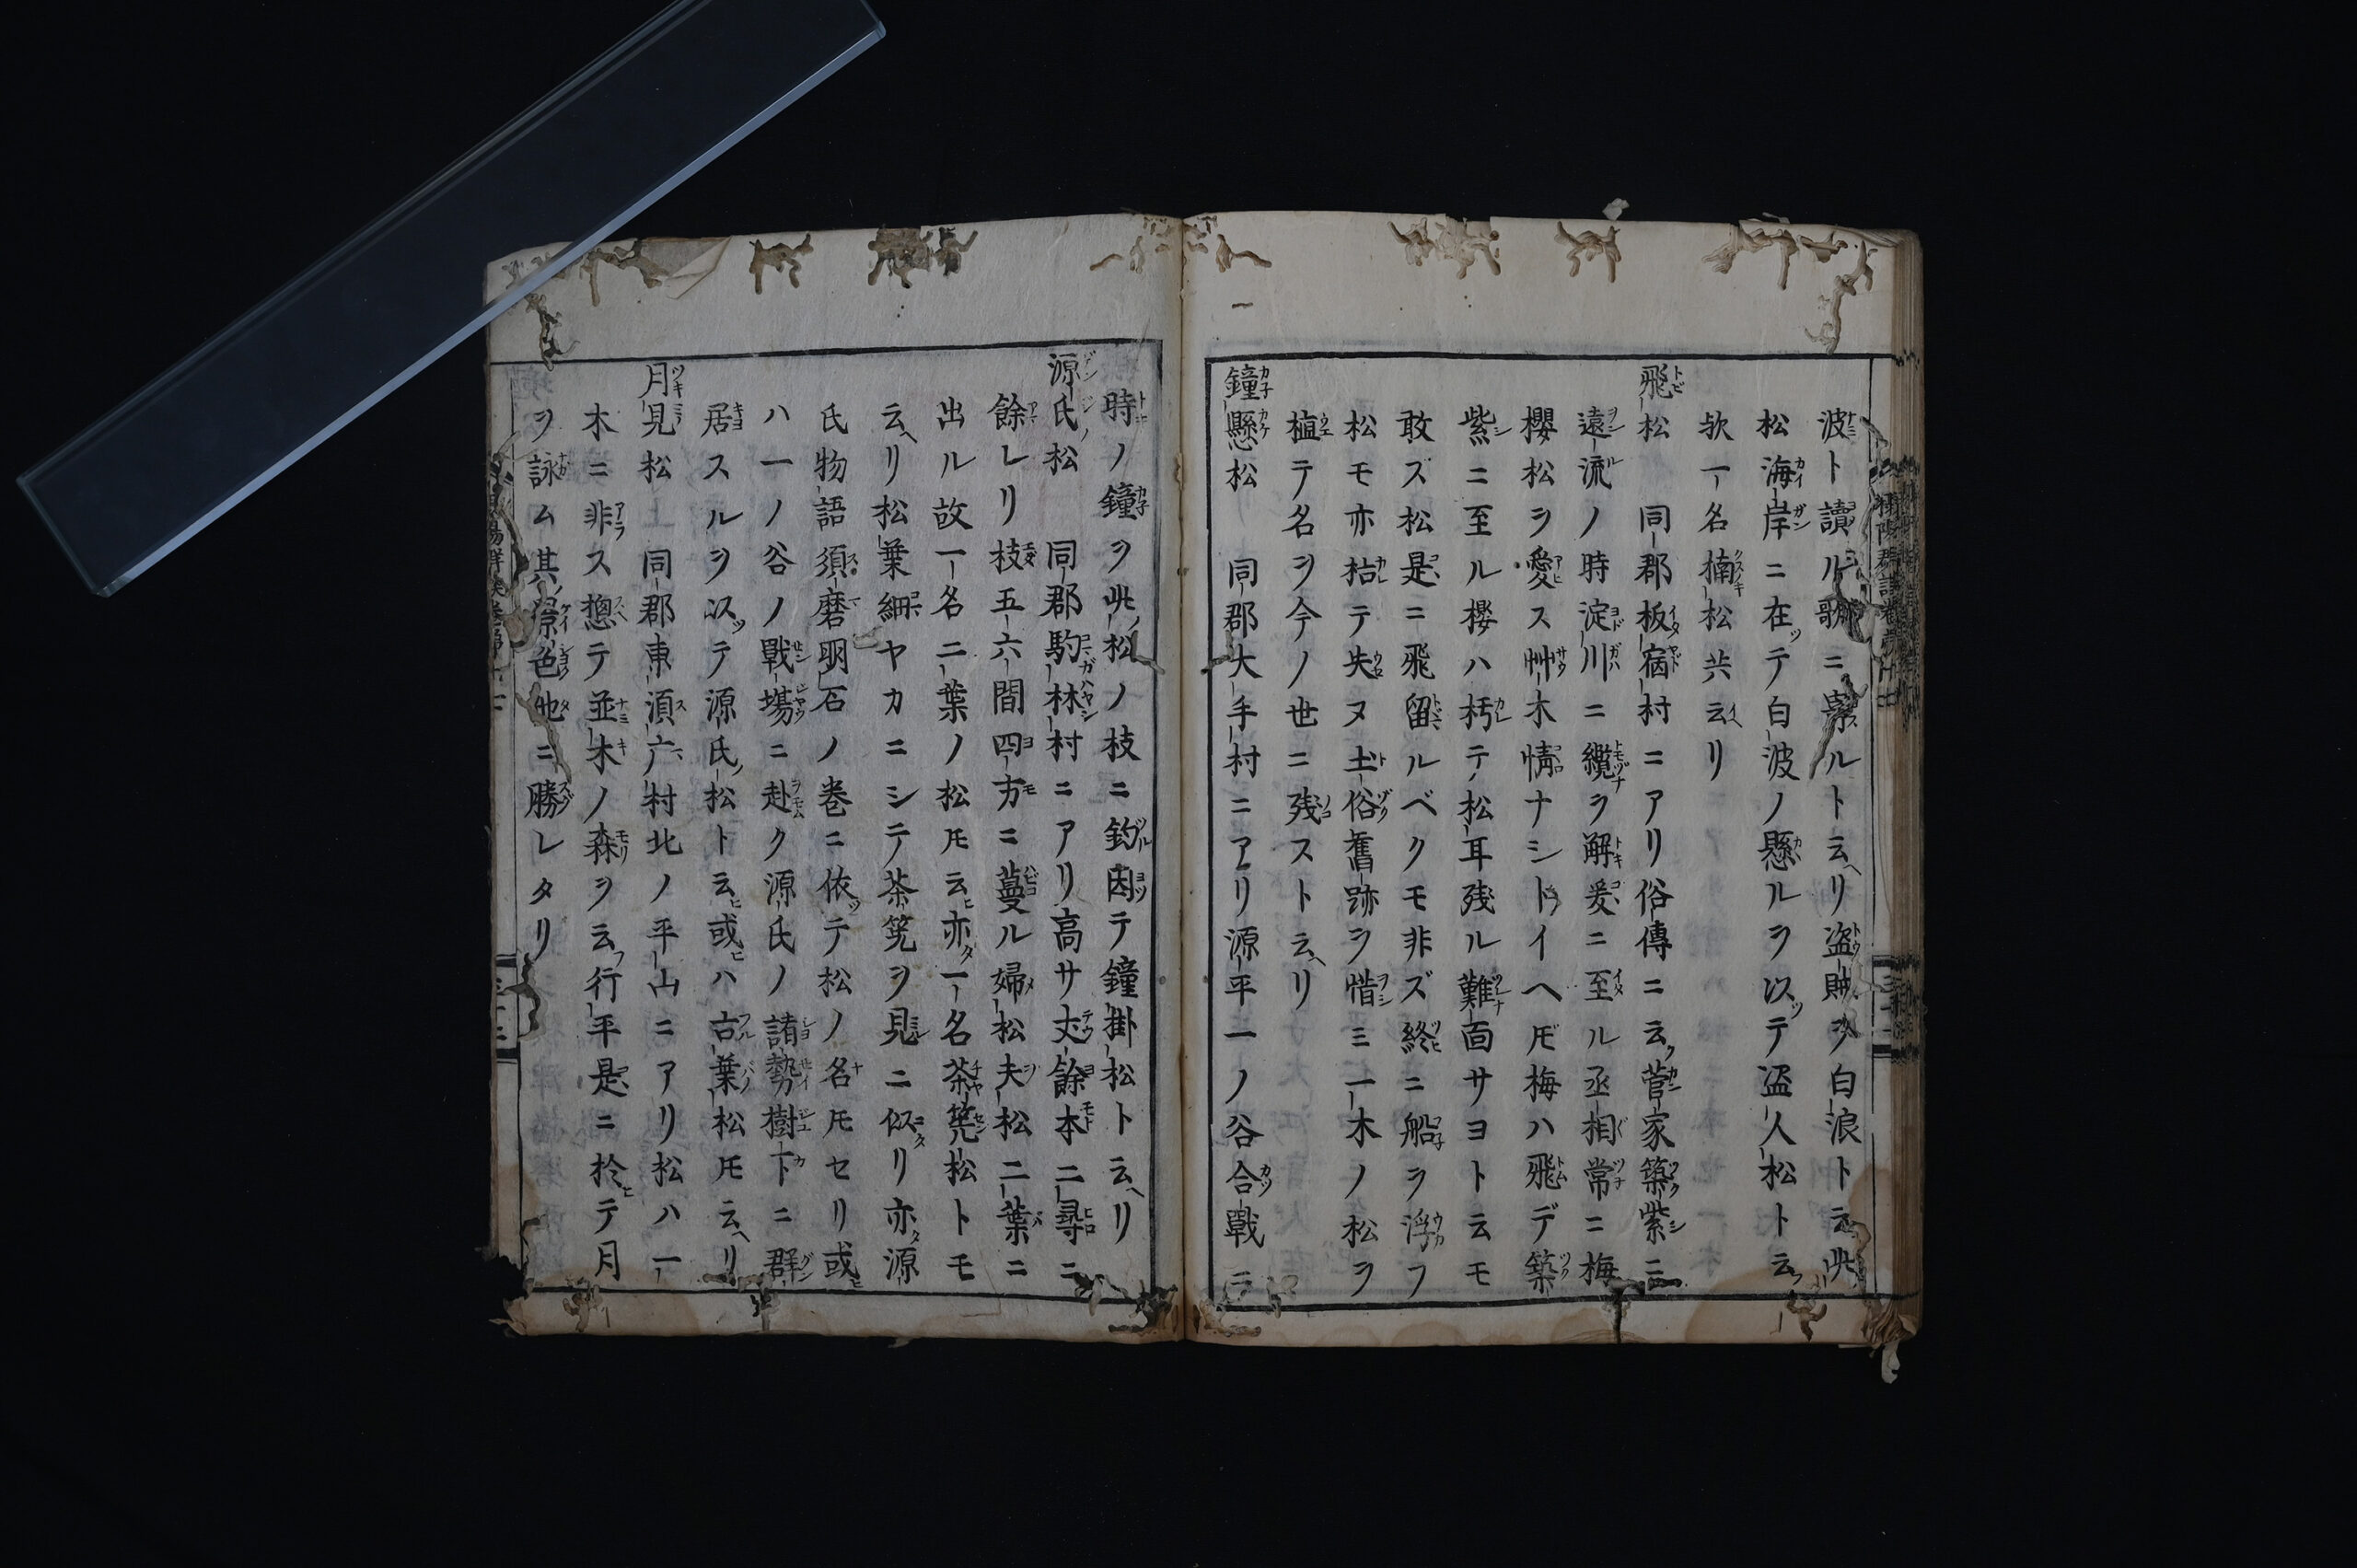 波ト讀ル歌ニ禦ルト云ヘリ盗賊ヲ白浪ト云此
松海岸ニ在テ白波ノ懸ルヲ以テ盗人松ト云フ
欤一名楠松共云リ
飛松 同郡板宿村ニアリ俗傳ニ云フ菅家築紫ニ
遠流ノ時淀川ニ纜ヲ解キ爰ニ至ル丞相常ニ梅
櫻松ヲ愛ス艸木情ナシトイヘ𪜈梅ハ飛デ築
紫ニ至ル櫻ハ朽テ松耳残ル難面サヨト云モ
敢ズ松是ニ飛留ルベクモ非ズ終ニ船ヲ浮フ
松モ亦枯テ失ヌ土俗舊跡ヲ惜ミ一木ノ松ヲ
植テ名ヲ今ノ世ニ残スト云ヘリ
鐘懸松 同郡大手村ニアリ源平一ノ谷合戰ニ
時ノ鐘ヲ此松ノ枝ニ釣因テ鐘掛松ト云ヘリ
源氏松 同郡駒林村ニアリ高サ丈餘本二尋ニ
餘レリ枝五六間四方ニ蔓ル婦松夫松二葉ニ
出ル故一名二葉ノ松𪜈云ヒ亦一名茶筅松トモ
云ヘリ松葉細ヤカニシテ茶筅ヲ見ニ似リ亦源
氏物語須磨明石ノ巻ニ依テ松ノ名𪜈セリ或
ハ一ノ谷ノ戰場ニ赴ク源氏ノ諸勢樹下ニ群
居スルヲ以テ源氏松ト云ヒ或ハ古葉松𪜈云ヘリ
月見松 同郡東須广村北ノ平山ニアリ松ハ一
木ニ非ス揔テ並木ノ森ヲ云フ行平是ニ於テ月
ヲ詠ム其景色他ニ勝レタリ